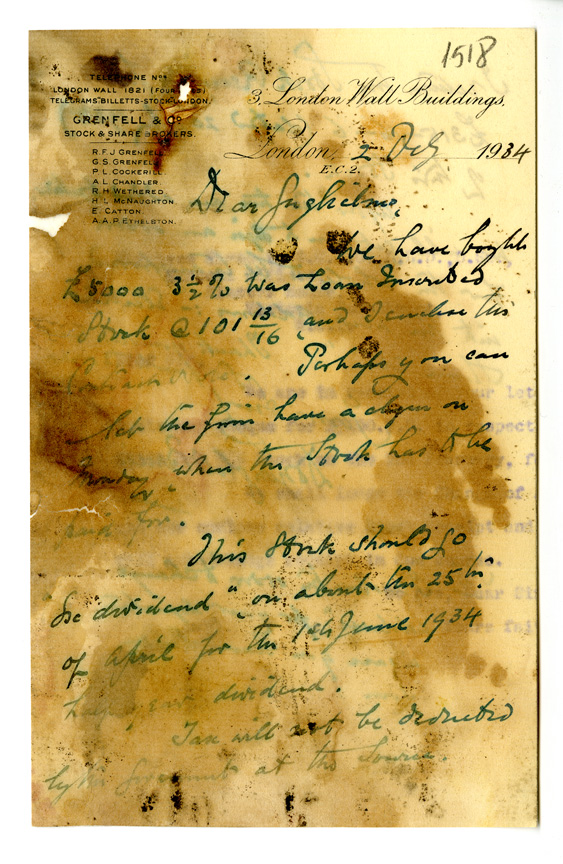 1518
TELEPHONE Nos
LONDON WALL 1821 (Four Lines)
TELEGRAMS·BILLETTS-STOCK-LONDON.
GRENFELL & Co
STOCK & SHARE BROKERS.
R.F.J GRENFELL
G.S GRENFELL
P L COCKERILL
A L CHANDLER
R H WETHERED
H L McNAUGHTON
E. CATTON.
A.A.P ETHELSTON.
3, London Wall Buildings,
London, 2 1934
E.C.2.
Dear Guglielmo,
We have bought
£5000 3½% War Loan Inscribed
Stock @ 101 13/16 and I enclose the
Perhaps you can
let the firm have a on
when the Stock has to be
This Stock should go
"dividend" on about the 25th
of April for the 1st June 1934
dividend.
Tax will not be deducted
at the source.